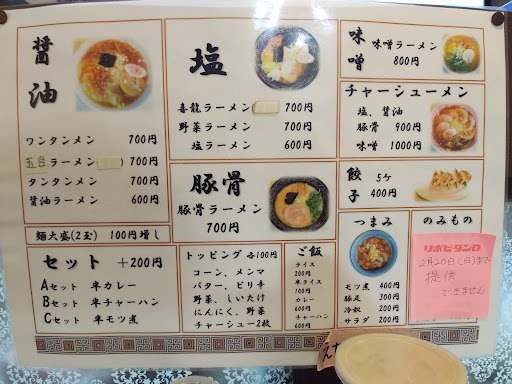 醤油
ワンタンメン 700円
五目ラーメン 700円
タンタンメン 700円
醤油ラーメン 600円
麺大盛(2玉) 100円増し
セット +200円
Aセット 半カレー
Bセット 半チャーハン
Cセット 半モツ煮
塩
喜龍ラーメン 700円
野菜ラーメン 700円
塩ラーメン 600円
豚骨
豚骨ラーメン
700円
トッピング 各100円
コーン、メンマ
バター、ピリ辛
野菜、しいたけ
にんにく、野菜
チャーシュー2枚
ご飯
ライス
200円
半ライス
100円
カレー
600円
チャーハン
600円
味噌
味噌ラーメン
800円
チャーシューメン
塩、醤油
豚骨 900円
味噌 1000円
餃子
5ケ
400円
つまみ
モツ煮 400円
豚足 300円
冷奴 200円
サラダ 200円
のみもの
リポビタンD
2月20日(日)まで
提供
できません